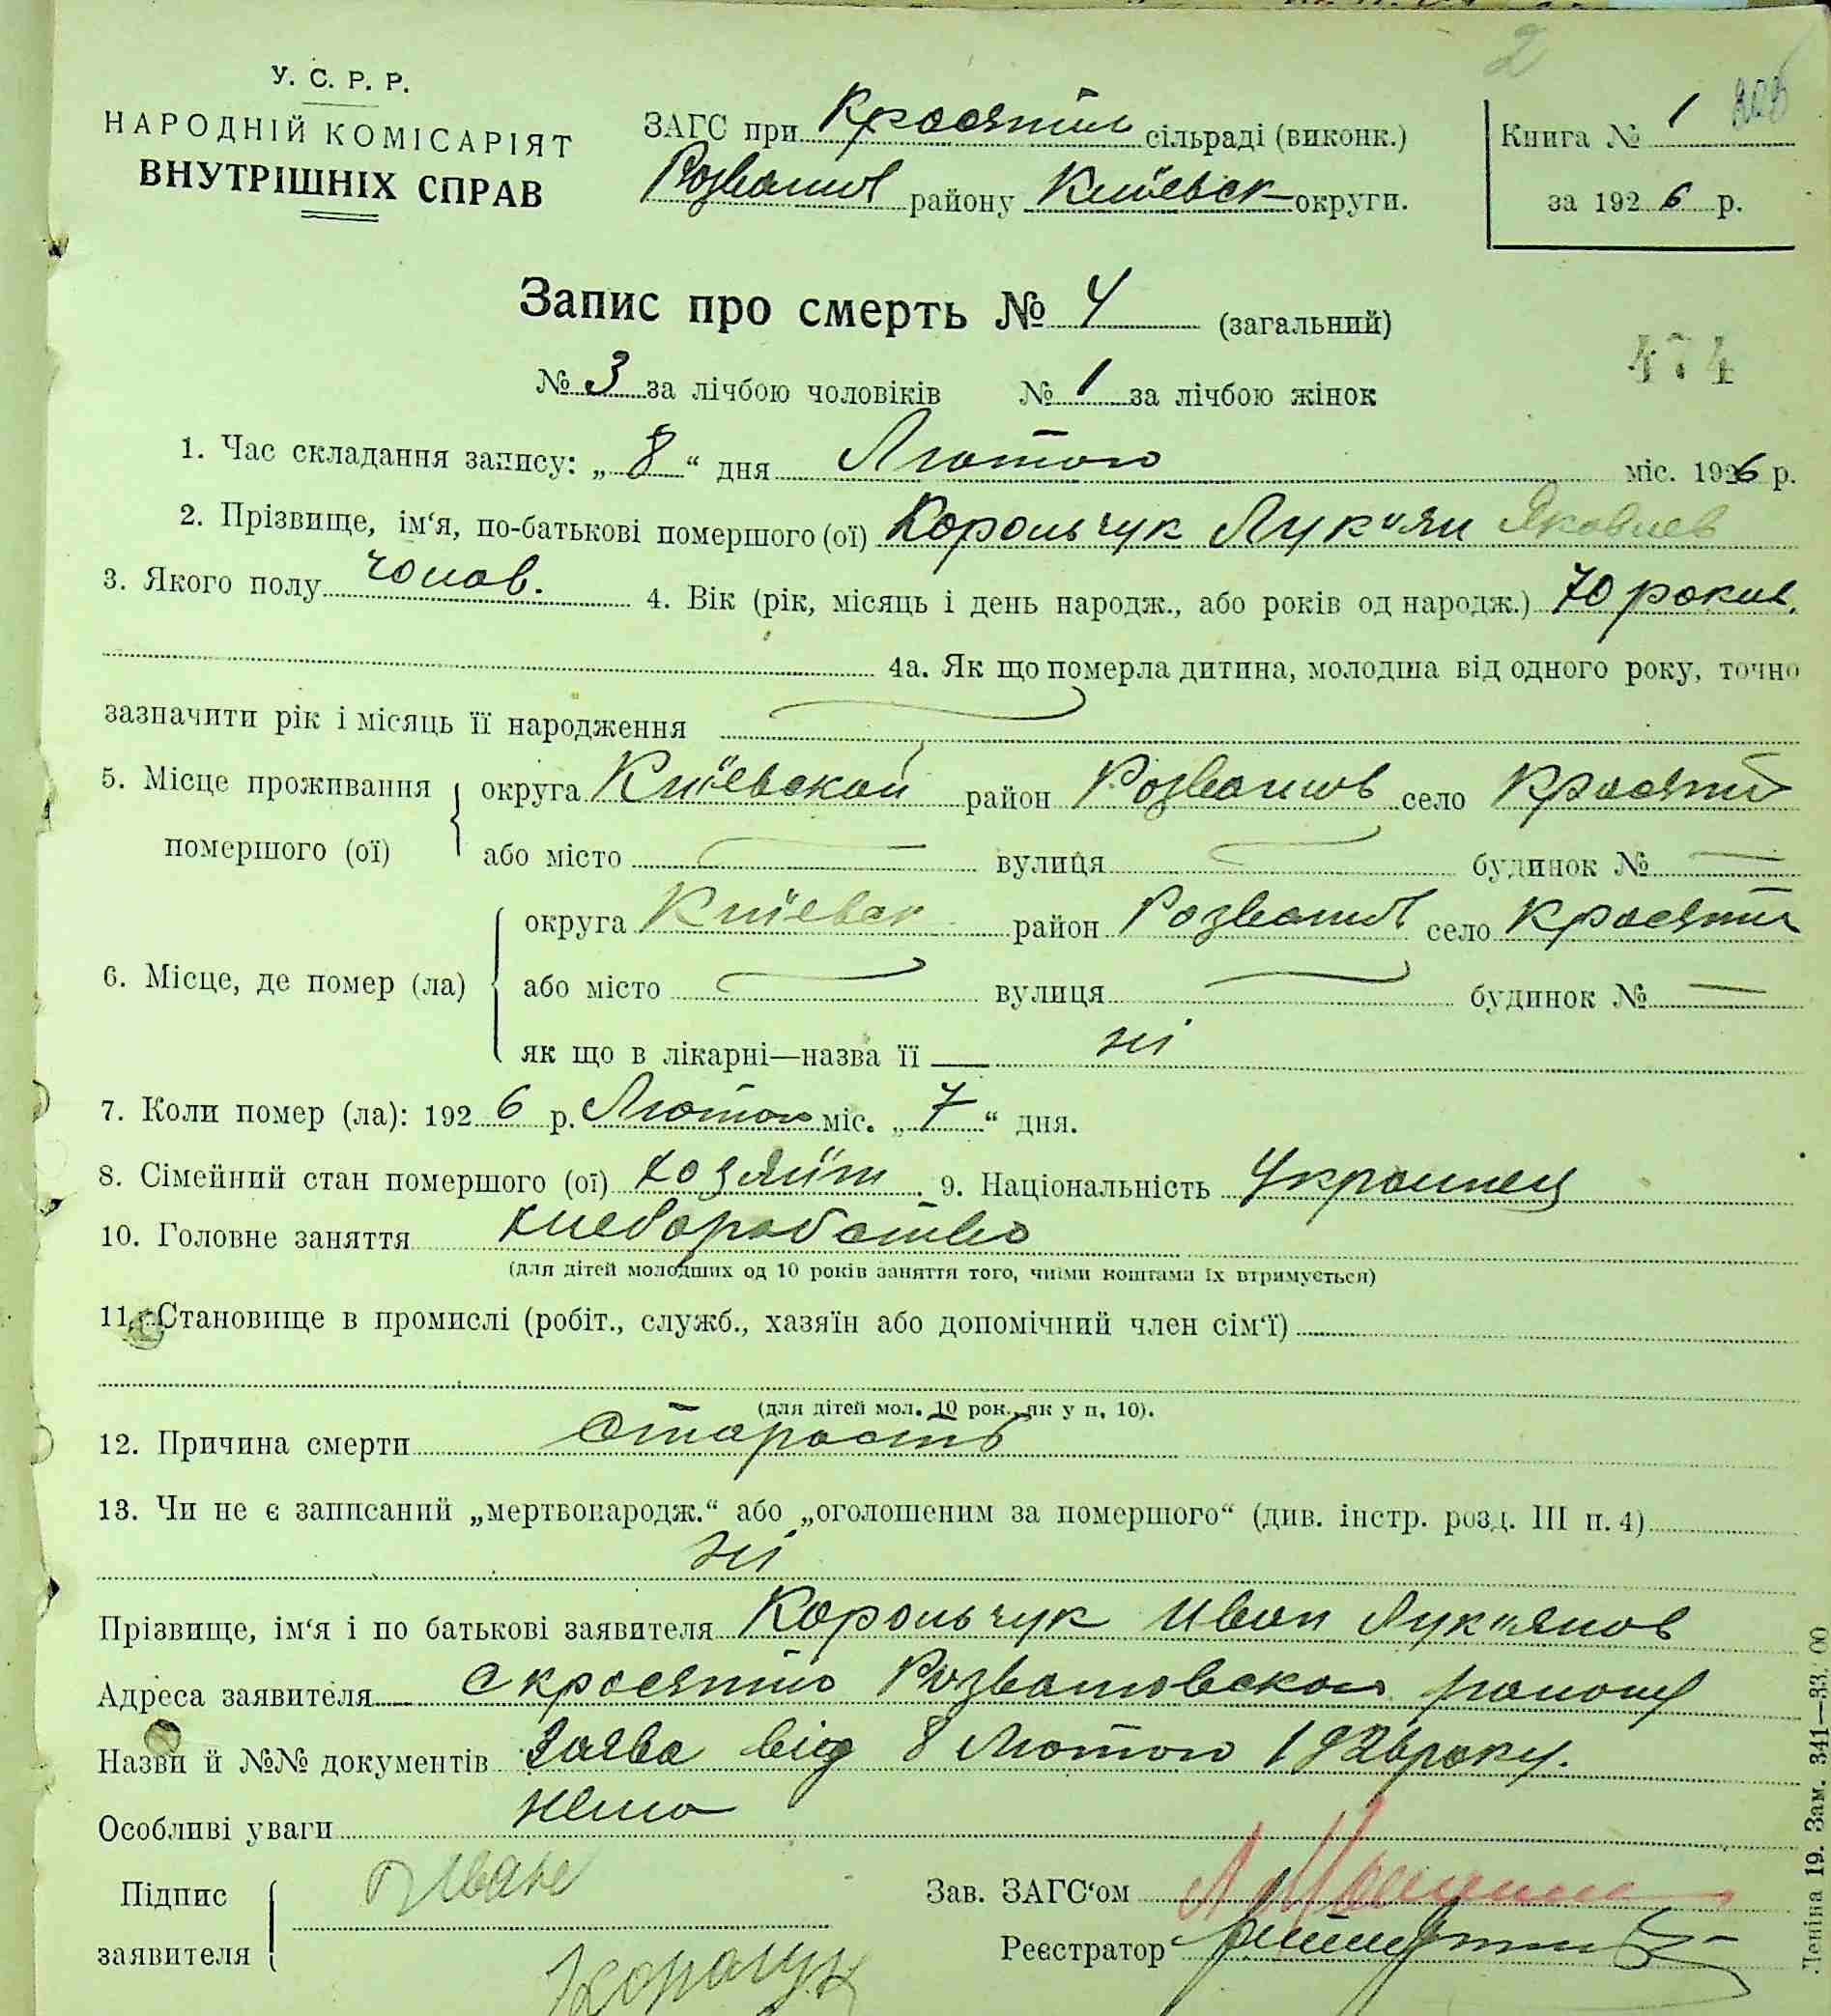 2
У. С. Р. Р.
НАРОДНІЙ КОМІСАРІЯТ
ВНУТРІШНІХ СПРАВ
ЗАГС при Красятил сільраді (виконк.)
Розважив району Київськ округи.
Книга № 1
за 1926 р.
Запис про смерть № 4 (загальний)
№ 3 за лічбою чоловіків № 1 за лічбою жінок
474
1. Час складання запису: „8“ дня Лютого міс. 1926 р.
2. Прізвище, ім‘я, по-батькові помершого (ої) Корольчук Лук'ян Яковлев
3. Якого полу чолов. 4. Вік (рік, місяць і день народж., або років од народж.) 70 років.
4а. Як що померла дитина, молодша від одного року, точно
зазначити рік і місяць її народження
5. Місце проживання помершого (ої) округа Київской район Розважив село Красяти
або місто вулиця будинок №
6. Місце, де помер (ла) округа Київськ район Розважив село Красяти
або місто вулиця будинок №
як що в лікарні—назва її ні
7. Коли помер (ла): 1926 р. Лютого міс. „7“ дня.
8. Сімейний стан помершого (ої) хозяїн. 9. Національність Украинец
10. Головне заняття хлеборобство
(для дітей молодших од 10 років заняття того, чиїми коштами їх втримується)
11. Становище в промислі (робіт., служб., хазяїн або допомічний член сім‘ї)
(для дітей мол. 10 рок., як у п. 10).
12. Причина смерти Старость
13. Чи не є записаний „мертвонародж.“ або „оголошеним за помершого“ (див. інстр. розд. III п. 4)
ні
Прізвище, ім‘я і по батькові заявителя Корольчук Иван Лук'янов
Адреса заявителя с Красятичо Розважовского району
Назви й №№ документів Заява від 8 Лютого 1926 року.
Особливі уваги нема
Підпис заявителя Иване
Королчук
Зав. ЗАГС‘ом
Реєстратор
Леніна 19. Зам. 341—33.00